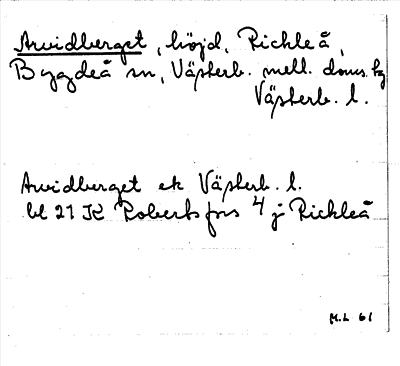 Arvidberget, höjd, Rickleå,
Bygdeå sn, Västerb. mell. doms. hg
Västerb. l.
Arvidberget ek Västerb. l.
bl 21 K Robertsfors 4 j Rickleå
M.L 61